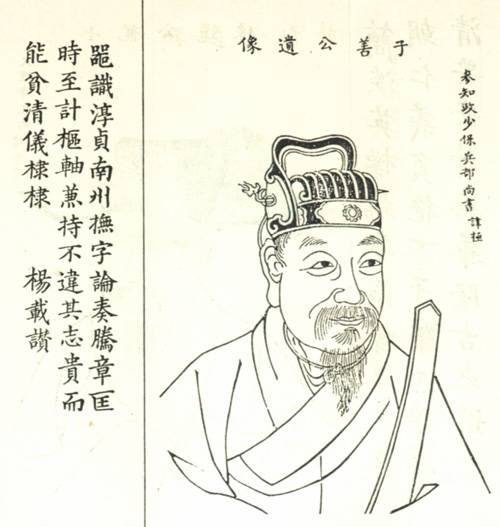 參知政少保兵部尚書諱
子善公遺像
噐識淳貞南州撫字論奏騰章匡
時至計樞軸兼持不違其志貴而
能貧清儀棣棣 楊載讚